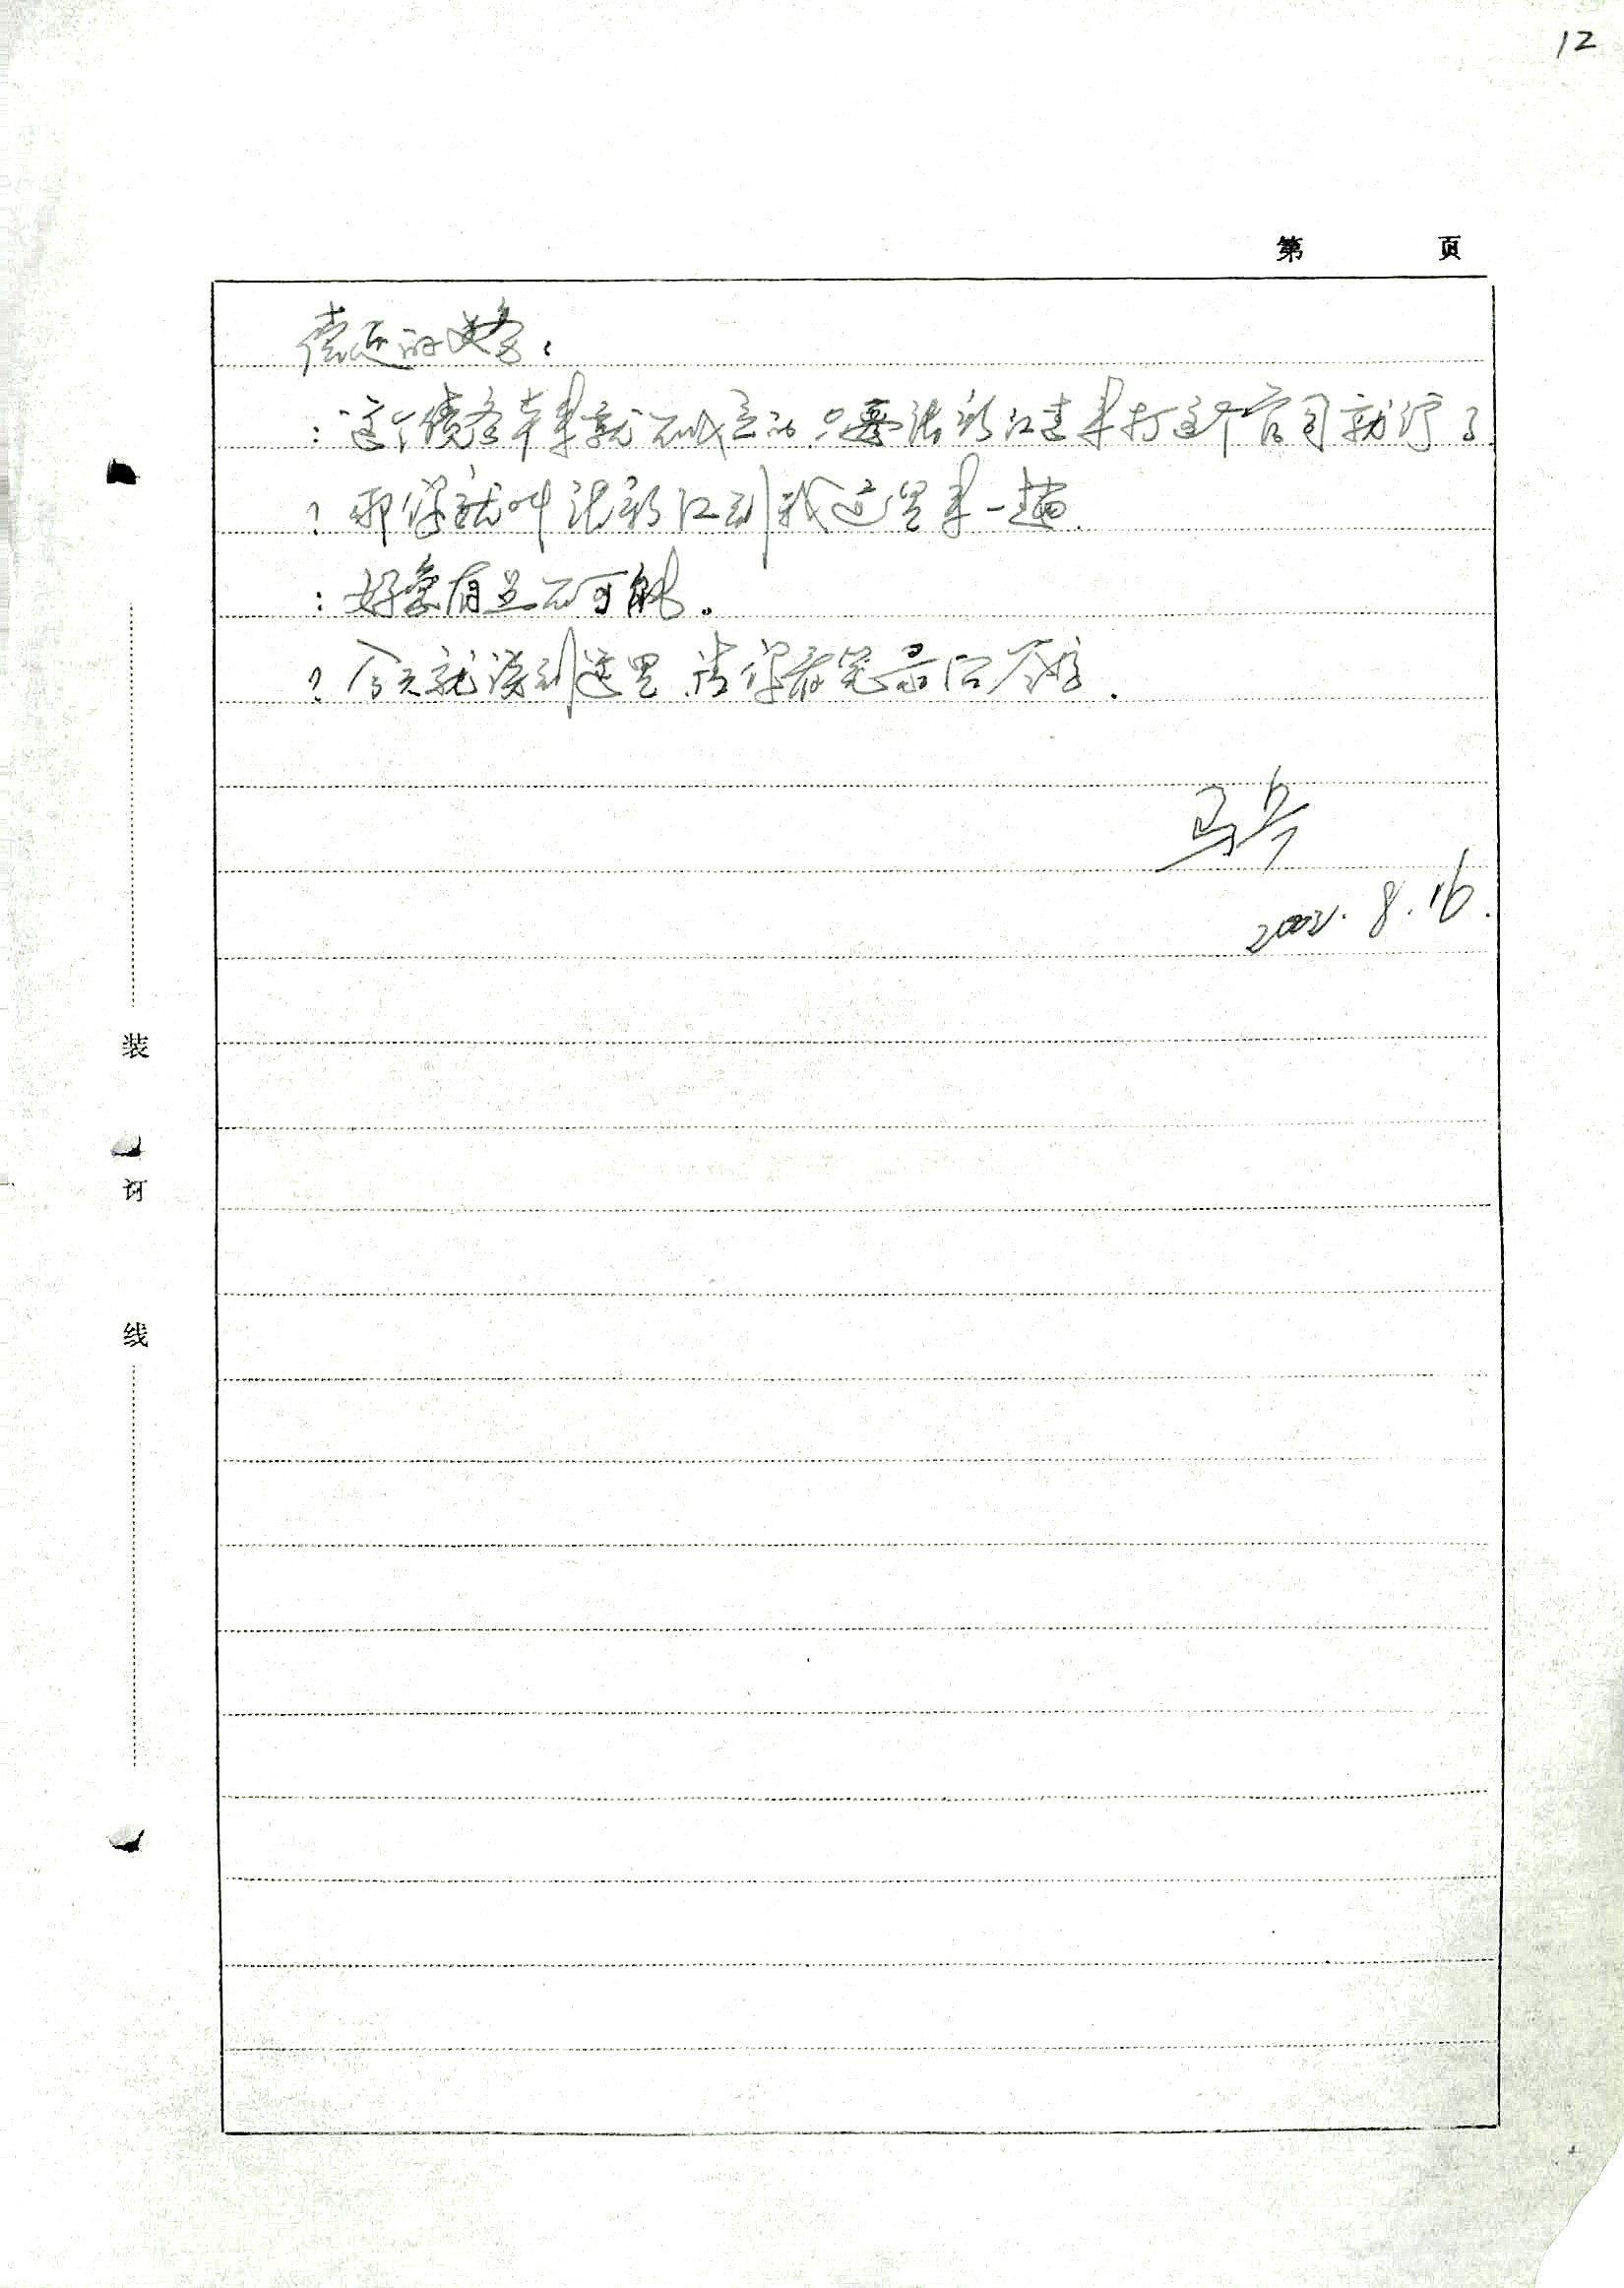 12
第 页
偿还的义务.
: 这个债务本来就不成立的.只要张新江来打这个官司就行了
? 那你就叫张新江到我这里来一趟.
: 好象有点不可能.
? 今天就谈到这里.请你看笔录后签字.
马
2002.8.16.
装
订
线